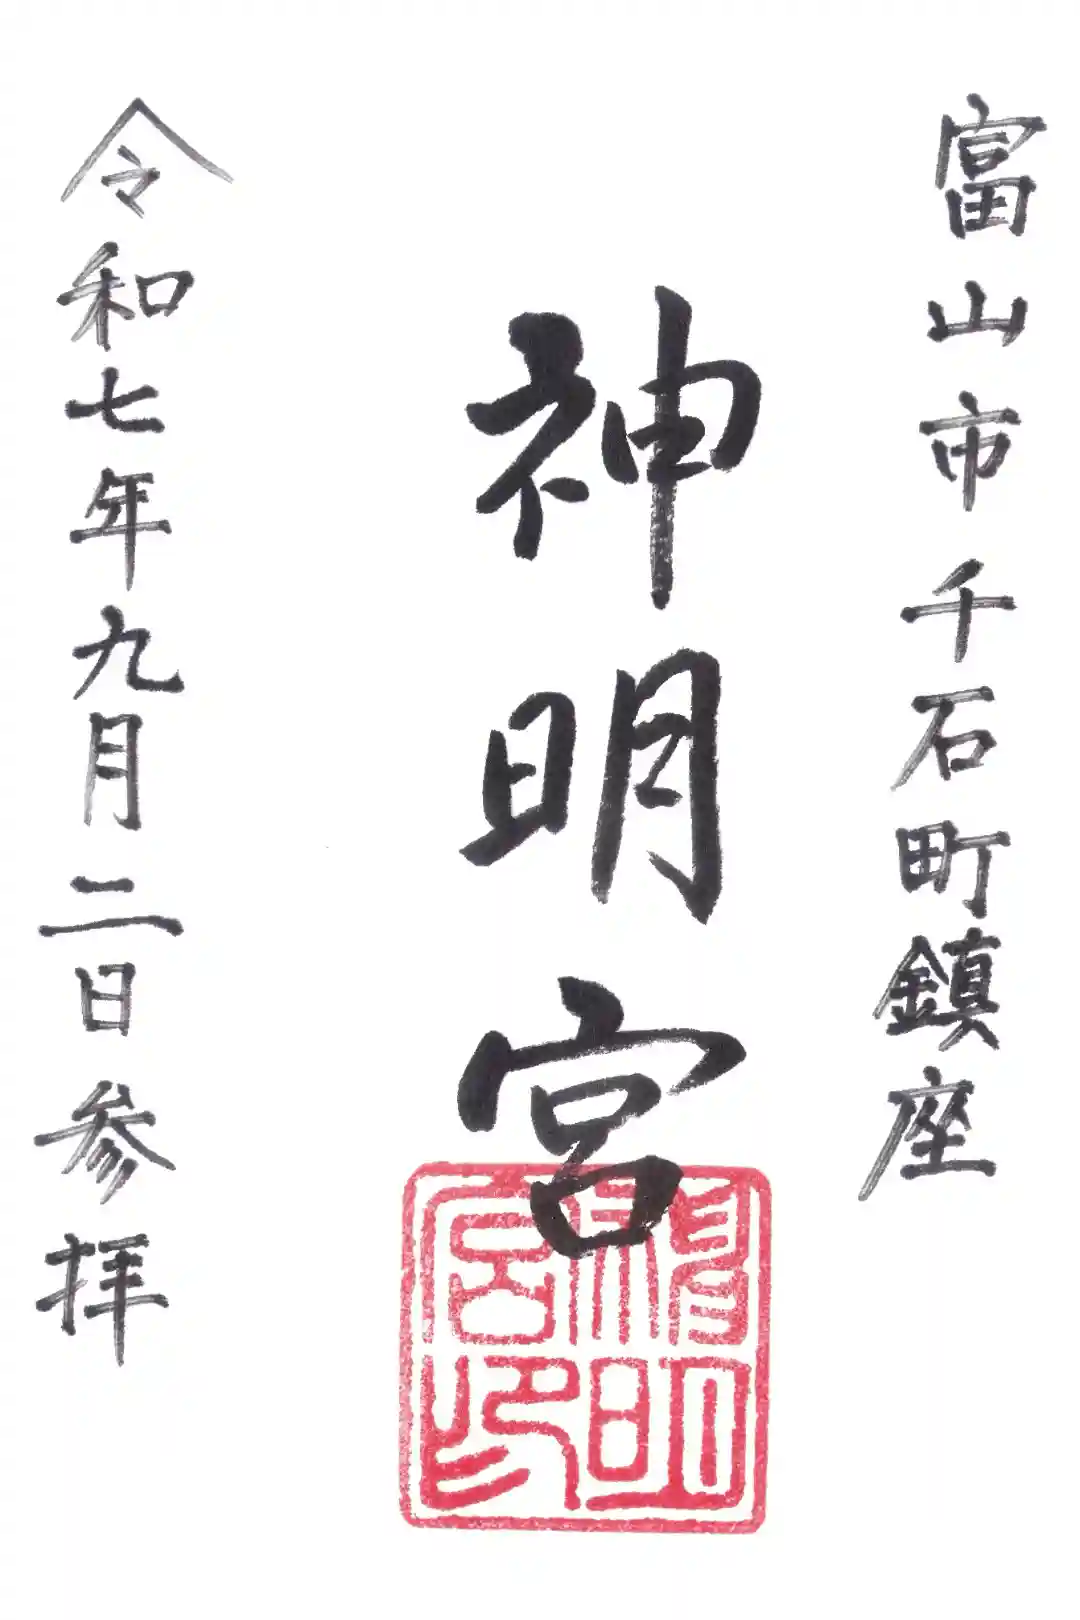 富山市千石町鎮座
神明宮
令和七年九月二日参拝